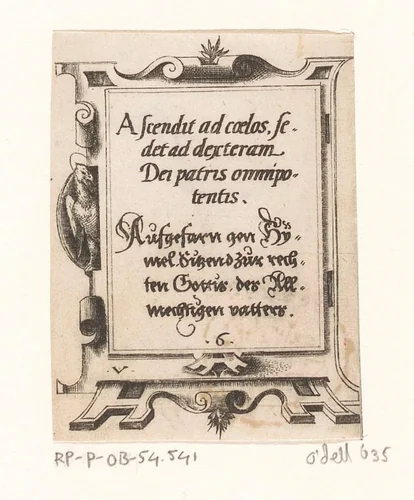 Ascendit ad cœlos, se-
det ad dexteram
Dei patris omnipo-
tentis.
Aufgefarn gen Hÿ-
mel. Sitzend zur rech-
ten Gottis, des All-
mechtigen vatters.
.6.
V
RP-P-OB-54.541
o'dell 635